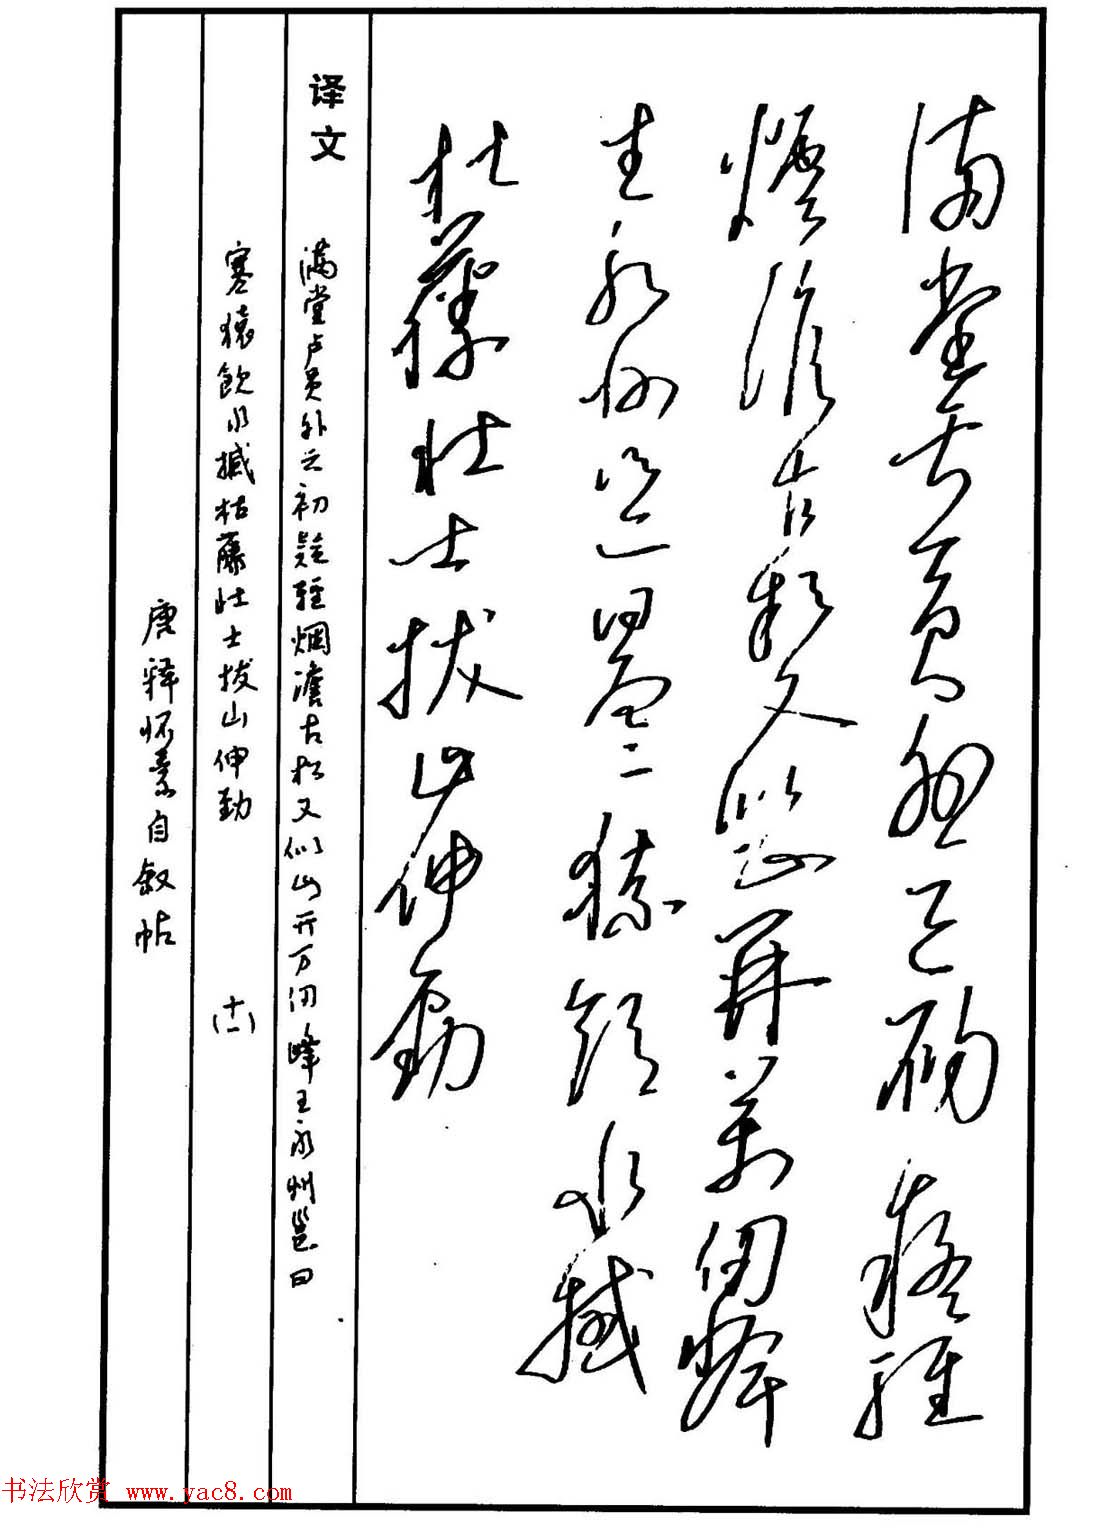 满堂卢员外云初疑轻
烟澹古松又似山开万仞峰
王永州邕曰寒猿饮水撼
枯藤壮士拔山伸劲
译文 满堂卢员外云初疑轻烟澹古松又似山开万仞峰王永州邕曰
寒猿飲水撼枯藤壮士拔山伸勁
(十一)
唐释怀素自叙帖
书法欣赏 www.yac8.com